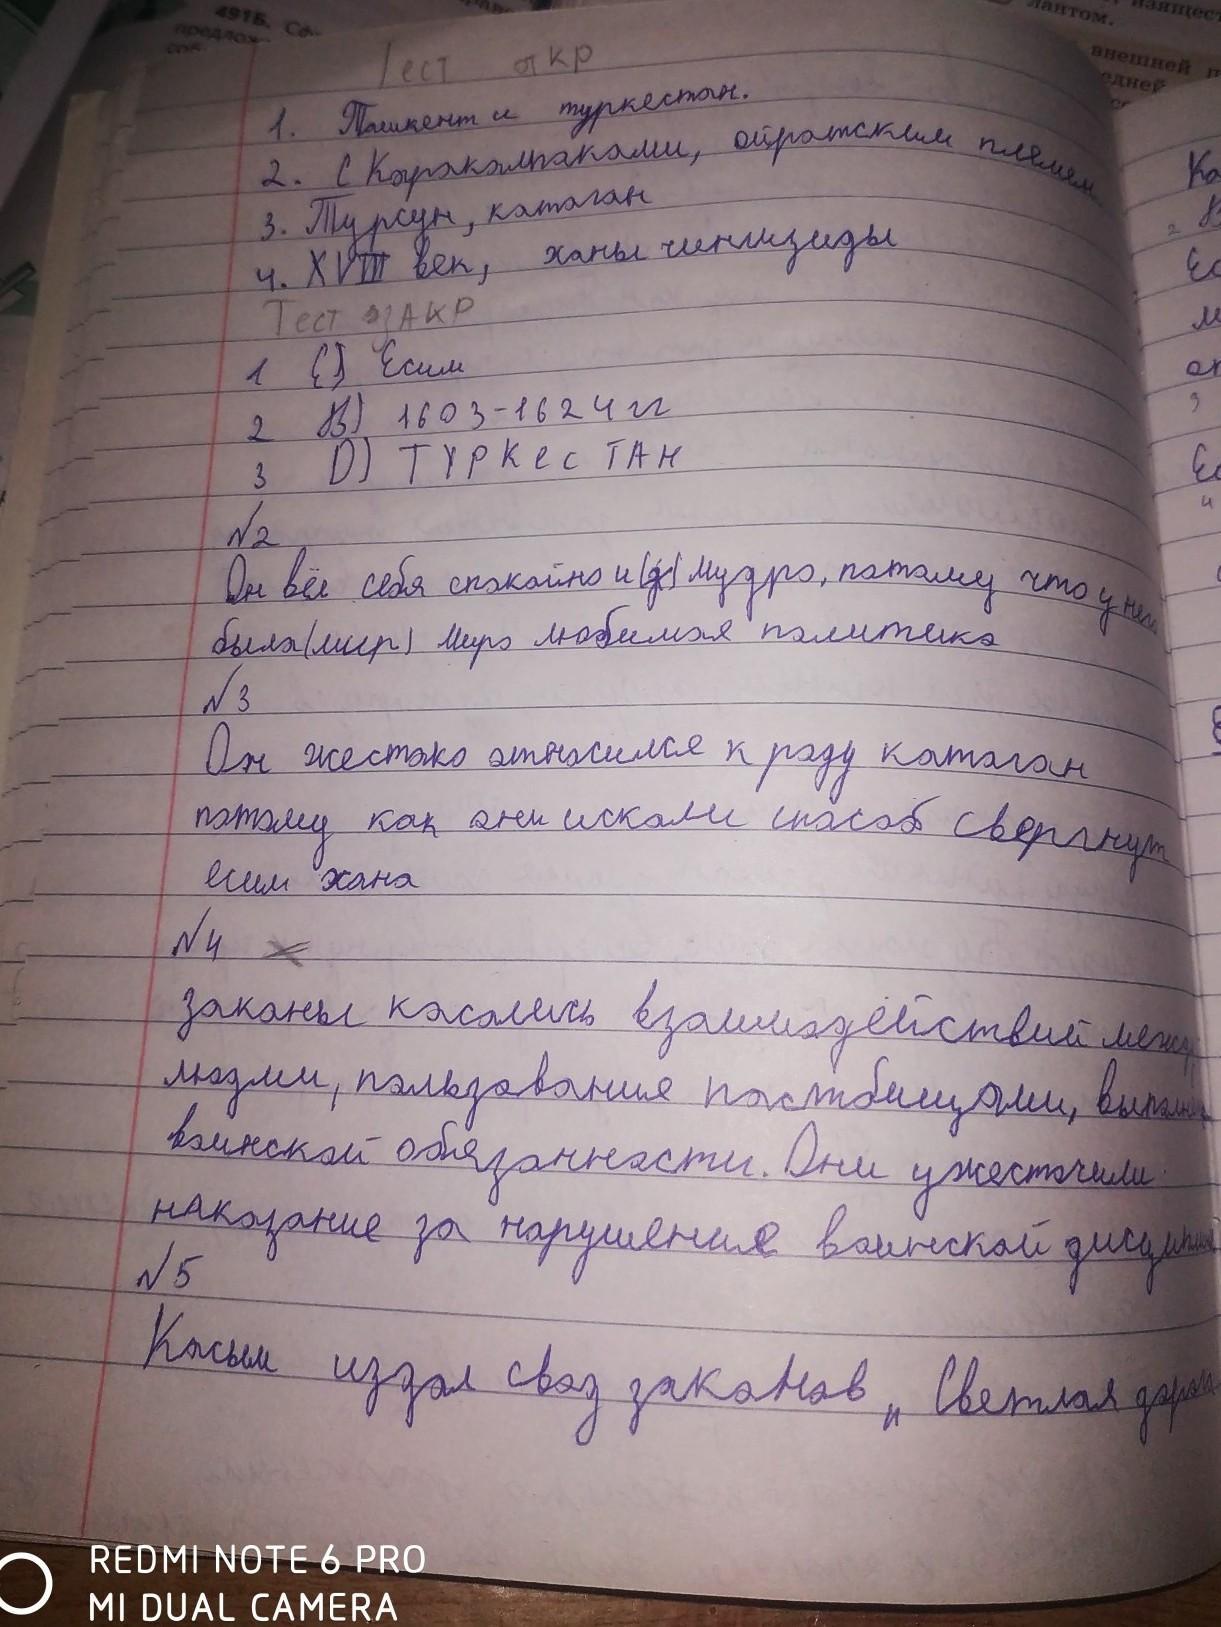 491Б. Со
предлож
сок.
изящест
лантом.
внешней п
едней
Тест откр
1. Ташкент и туркестан.
2. С Каракалпаками, ойратским племем
3. Турсун, катаган
4. XVIII век, ханы чингизиды
Тест закр
1 C) Есим
2 B) 1603-1624 гг
3 D) ТУРКЕСТАН
№2
Он вёл себя спокойно и (д) Мудро, потому что у него
была (мир) Миро любимая политика
№3
Он жестоко относился к роду катаган
потому как они искали способ свергнут
есим хана
№4
законы касались взаимодействий между
людми, пользования пастбищами, выполн
воинской обязанности. Они ужесточили
наказание за нарушение воинской дисциплин
№5
Касым издал свод законов „ Светлая дорог
Ка
В
Ес
м
от
Ес
REDMI NOTE 6 PRO
MI DUAL CAMERA